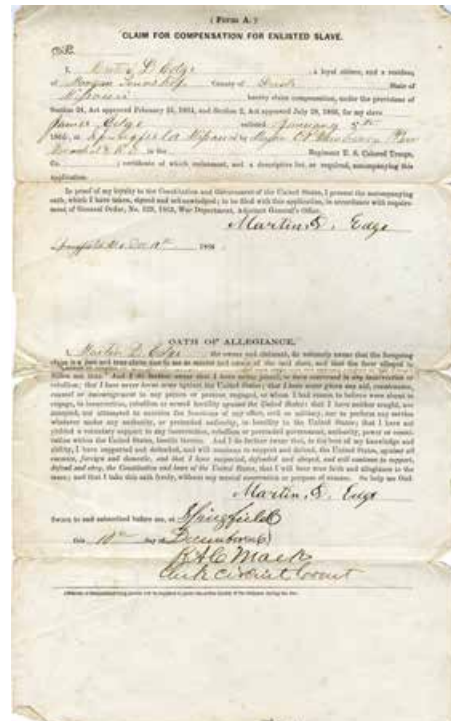 ( Form A. )
CLAIM FOR COMPENSATION FOR ENLISTED SLAVE.
No.
I, Martin D. Edge, a loyal citizen, and a resident
of Morgan Township County of State of
Missouri hereby claim compensation, under the provisions of
Section 24, Act approved February 24, 1864, and Section 2, Act approved July 28, 1866, for my slave
James Edge enlisted January 5th
186 at Springfield Missouri by Major
Marshal Regiment U. S. Colored Troops,
Co. ; certificate of which enlistment, and a descriptive list, as required, accompany this
application.
In proof of my loyalty to the Constitution and Government of the United States, I present the accompanying
oath, which I have taken, signed and acknowledged; to be filed with this application, in accordance with require-
ment of General Order, No. 329, 1863, War Department, Adjutant General's Office.
Martin D. Edge
Springfield Mo Dec 10th 186
OATH OF ALLEGIANCE.
I, Martin D. Edge the owner and claimant, do solemnly swear that the foregoing
claim is a just and true claim due to me as master and owner of the said slave, and that the slave alleged is
And I do further swear that I have never joined, or been concerned in any insurrection or
rebellion; that I have never borne arms against the United States; that I have never given any aid, countenance,
counsel or encouragement to any person or persons engaged, or whom I had reason to believe were about to
engage, in insurrection, rebellion or armed hostility against the United States; that I have neither sought, nor
accepted, nor attempted to exercise the functions of any office, civil or military, nor to perform any service
whatever under any authority, or pretended authority, in hostility to the United States; that I have not
yielded a voluntary support to any insurrection, rebellion or pretended government, authority, power or consti-
tution within the United States, hostile thereto. And I do further swear that, to the best of my knowledge and
ability, I have supported and defended, and will continue to support and defend, the United States, against all
enemies, foreign and domestic, and that I have supported, defended and obeyed, and will continue to support,
defend and obey, the Constitution and laws of the United States, that I will bear true faith and allegiance to the
same; and that I take this oath freely, without any mental reservation or purpose of evasion. So help me God.
Martin D. Edge
Sworn to and subscribed before me, at Springfield
this 10th day of December
Mack
Clerk Circuit Court